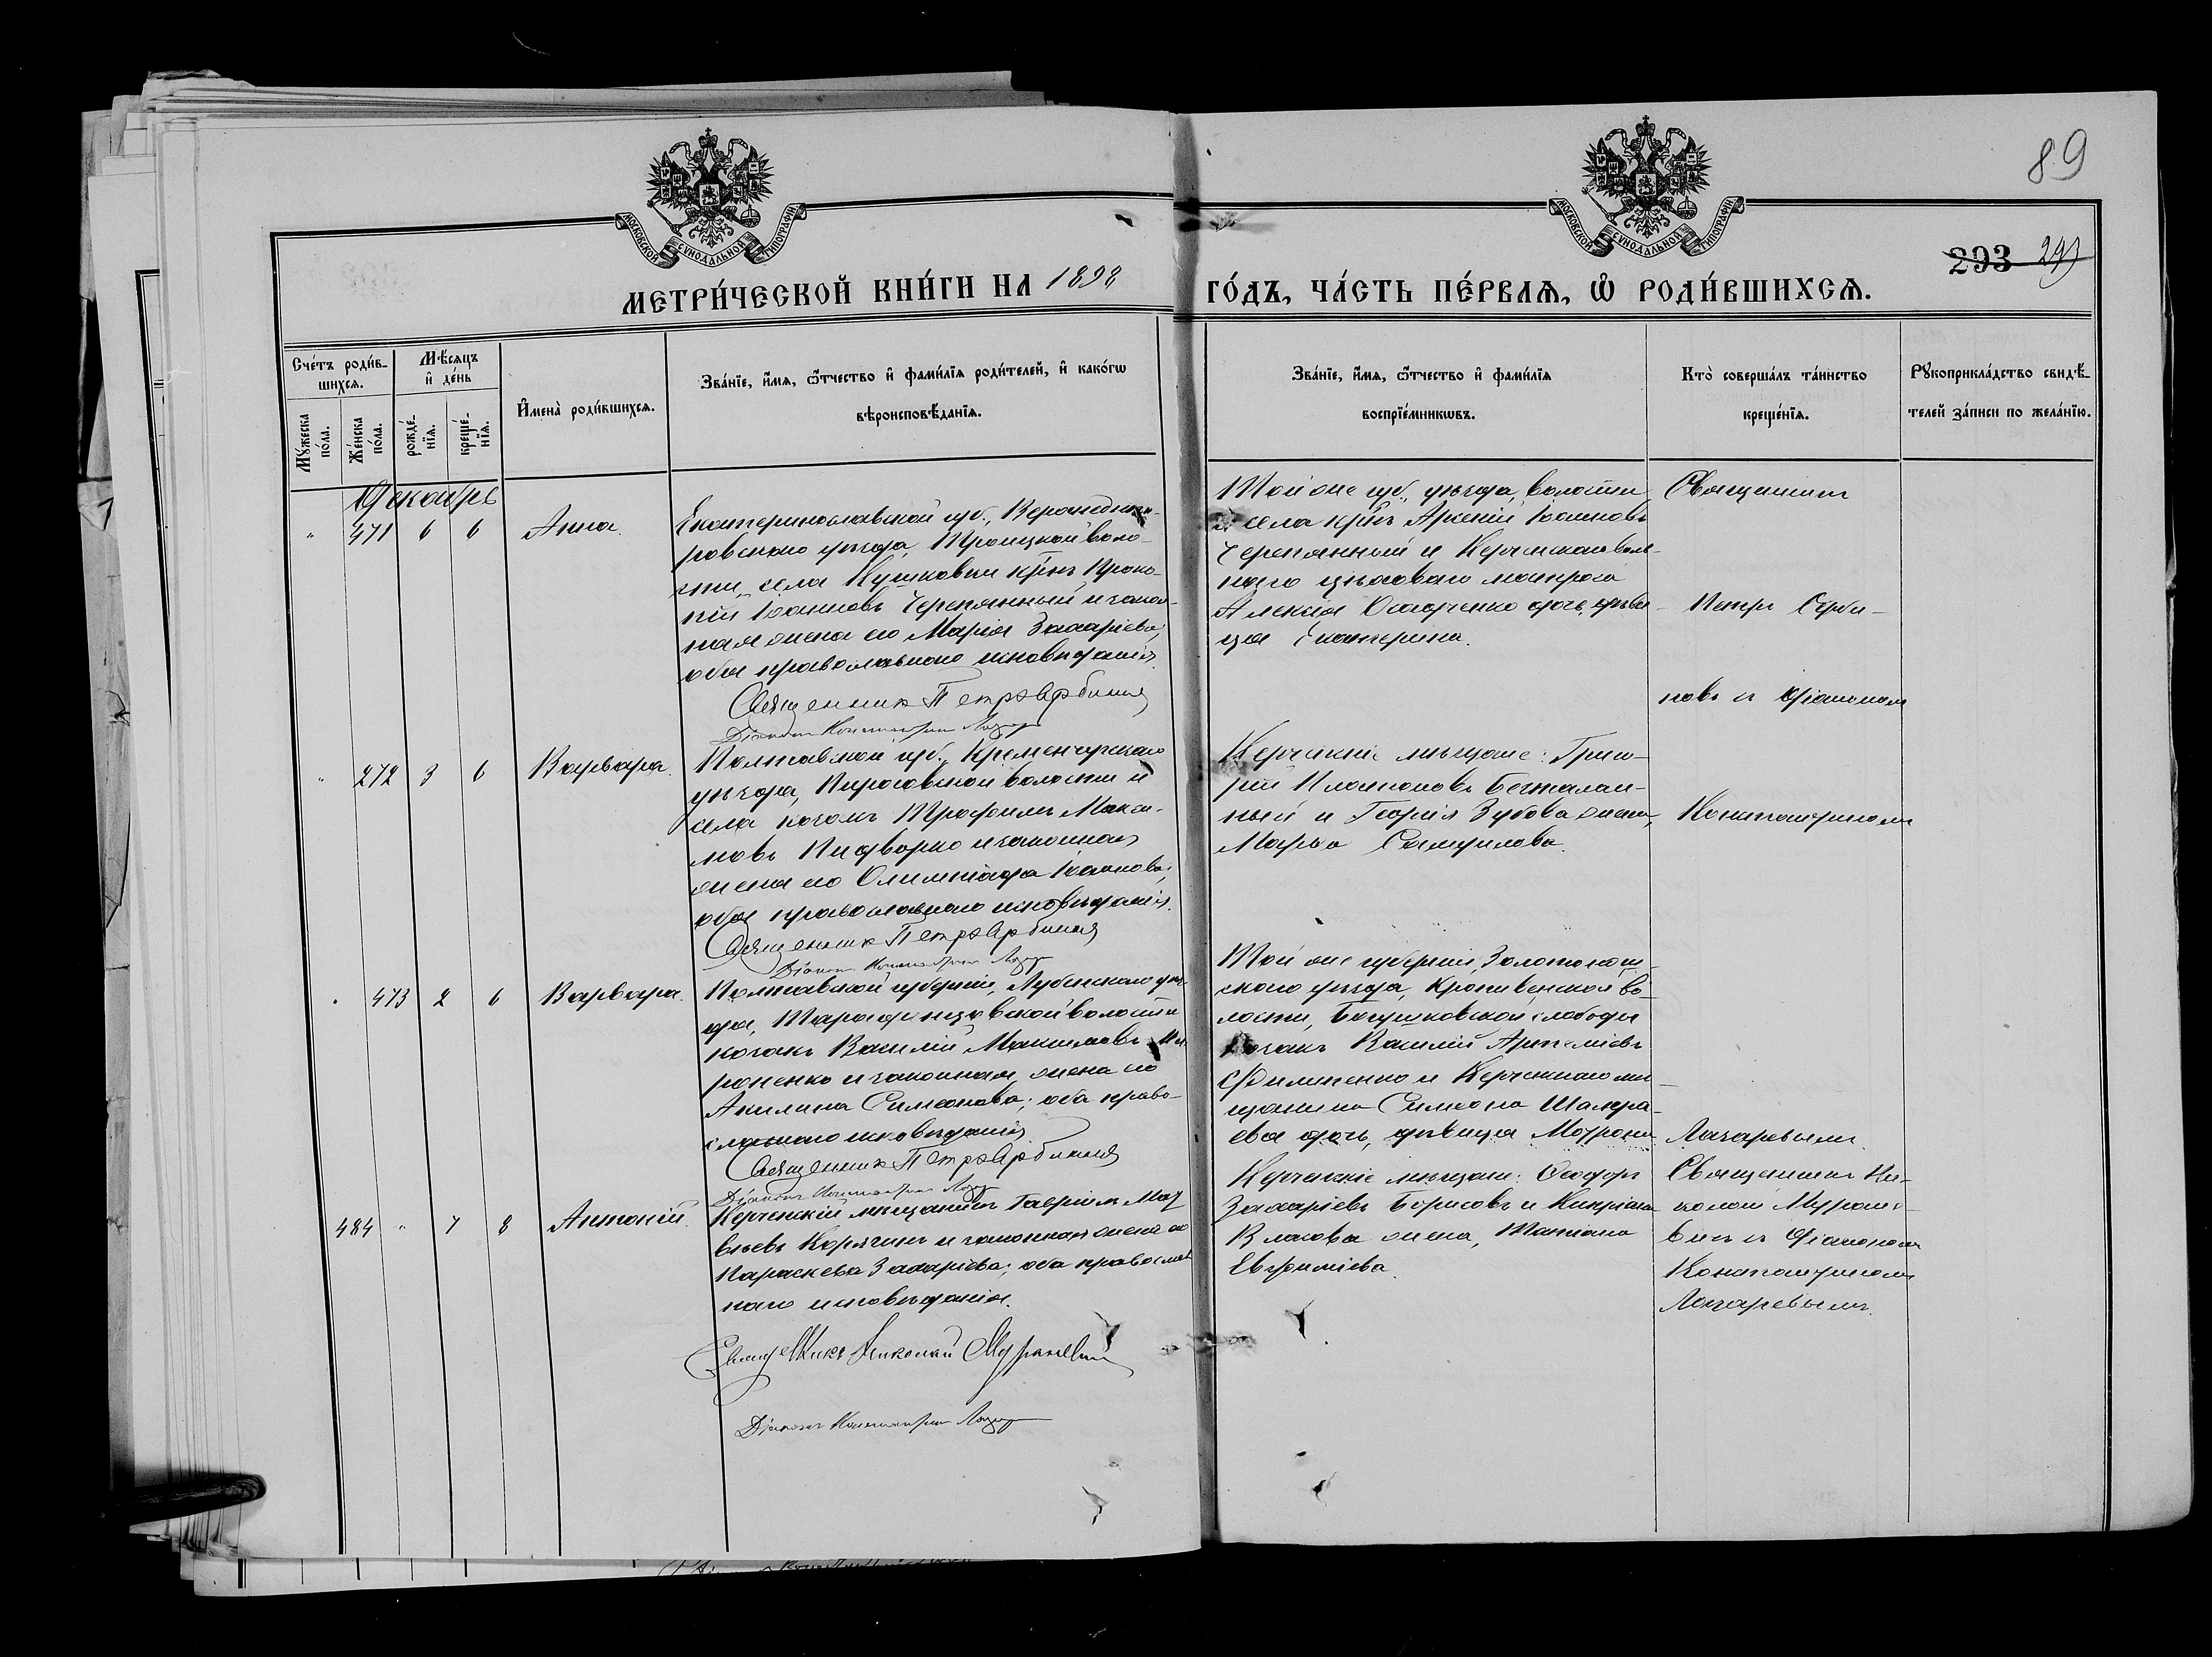 89
МОСКОВСКОЙ СѴНОДАЛЬНОЙ ТИПОГРАФІИ
МОСКОВСКОЙ СѴНОДАЛЬНОЙ ТИПОГРАФІИ
293
МЕТРИ́ЧЕСКОЙ КНИ́ГИ НА 1898 ГО́ДЪ, ЧА́СТЬ ПЕ́РВАѦ, Ѡ҆ РОДИ́ВШИХСѦ.
Сче́тъ роди́в-
шихсѧ.
Мꙋ́жеска по́ла.
Же́нска по́ла.
Мѣ́сѧцъ и҆ де́нь
рожде́-
нїѧ.
креще́-
нїѧ.
И҆мена̀ роди́вшихсѧ.
Зва́нїе, и҆́мѧ, ѻ҆́тчество и҆ фами́лїѧ роди́телей, и҆ како́гѡ
вѣроисповѣ́данїѧ.
Зва́нїе, и҆́мѧ, ѻ҆́тчество и҆ фами́лїѧ
воспрїе́мникѡвъ.
Кто̀ соверша́лъ та́инство
креще́нїѧ.
Рꙋкоприкла́дство свидѣ́-
телей за́писи по жела́нїю.
Декабрь
" 471 6 6 Анна.
Екатеринославской губ., Верхнеднѣп-
ровскаго уѣзда, Троицкой воло-
сти, села Кушковки крест. Проко-
пій Іоанновъ Черепянный и закон-
ная жена его Марія Захаріева;
оба православнаго исповѣданія.
Священникъ Петръ Сербиновъ
Діаконъ Константинъ Лазаревъ
Той же губ., уѣзда, волости
и села крест. Арсеній Іоанновъ
Черепянный и Керченскаго
матроса
Алексія Осадченко дочь, дѣви-
ца Екатерина.
Священникъ
Петръ Серби-
новъ и діакономъ
" 272 3 6 Варвара.
Полтавской губ., Кременчугскаго
уѣзда, Пироговской волости и
села козакъ Трофимъ Макси-
мовъ Пидворко и законная
жена его Олимпіада Іоаннова;
оба православнаго исповѣданія.
Священникъ Петръ Сербиновъ
Діаконъ Константинъ Лазаревъ
Керченскіе мѣщане: Григо-
рій Платоновъ Безталан-
ный и Георгія Зубова жена,
Марѳа Самуилова.
Константиномъ
" 473 2 6 Варвара.
Полтавской губерніи, Лубенскаго уѣз-
да, Тарандинцовской волости
козакъ Василій Максимовъ Ми-
роненко и законная жена его
Акилина Симеонова; оба право-
славнаго исповѣданія
Священникъ Петръ Сербиновъ
Діаконъ Константинъ Лазаревъ
Той же губерніи, Золотонош-
скаго уѣзда, Кропивенской во-
лости, Богушковской слободы
козакъ Василій Артеміевъ
Филипенко и Керченскаго мѣ-
щанина Симеона
дочь, дѣвица Матрона
Лазаревымъ.
484 " 7 8 Антоній.
Керченскій мѣщанинъ Гавріилъ Мат-
вѣевъ Корягинъ и законная жена его
Параскева Захаріева; оба православ-
наго исповѣданія.
Священникъ Николай Мураневичъ
Діаконъ Константинъ Лазаревъ
Керченскіе мѣщане: Ѳеодоръ
Захаріевъ Борисовъ и Кипріана
Власова жена, Татіана
Евфиміева.
Священникъ Ни-
колай Муране-
вичъ и діакономъ
Константиномъ
Лазаревымъ.